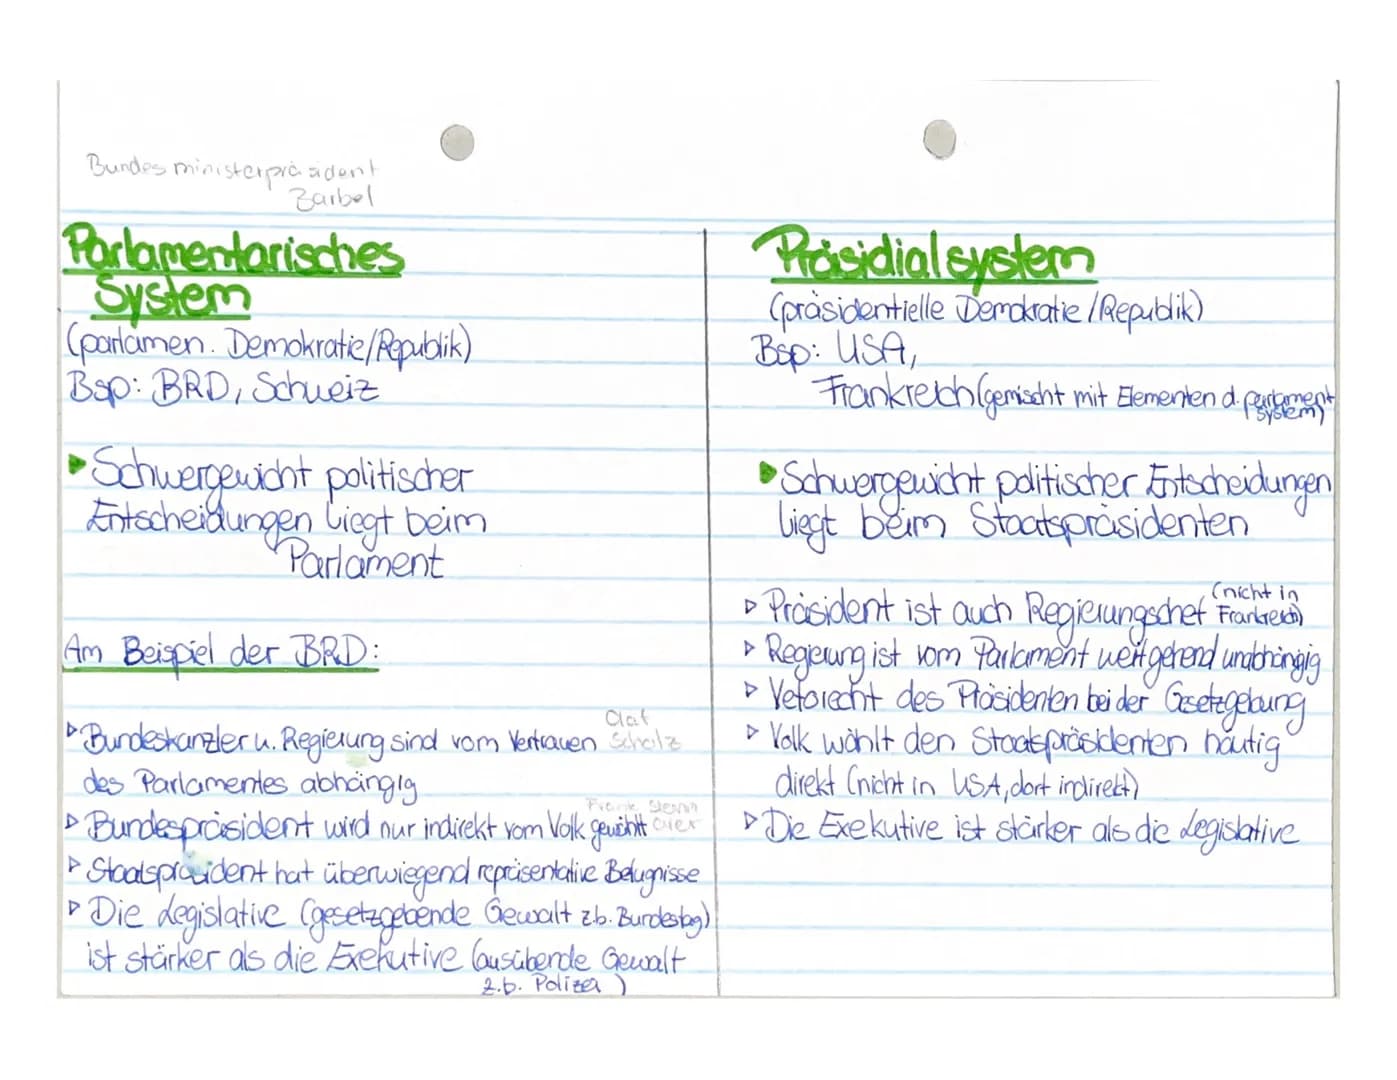 Bundesministerpräsident
Bärbel
Parlamentarisches
System
(parlamen. Demokratie/Republik)
Bsp: BRD, Schweiz
▸ Schwergewicht politischer
Entscheidungen liegt beim
Parlament
Am Beispiel der BRD:
▹ Bundeskanzler u. Regierung sind vom Vertrauen
Olaf
Scholz
des Parlamentes abhängig
▹ Bundespräsident wird nur indirekt vom Volk gewählt
Frank
▹ Staatspräsident hat überwiegend repräsentative Befugnisse
▹ Die Legislative (gesetzgebende Gewalt z.b. Bundestag)
ist stärker als die Exekutive (ausübende Gewalt
z.b. Polizei)
Präsidialsystem
(präsidentielle Demokratie/Republik)
Bsp: USA,
Frankreich (gemischt mit Elementen d. parlament
system)
▸ Schwergewicht politischer Entscheidungen
liegt beim Staatspräsidenten
▹ Präsident ist auch Regierungschef (nicht in
Frankreich)
▹ Regierung ist vom Parlament weitgehend unabhängig
▹ Vetorecht des Präsidenten bei der Gesetzgebung
▹ Volk wählt den Staatspräsidenten häufig
direkt (nicht in USA, dort indirekt)
▹ Die Exekutive ist stärker als die Legislative